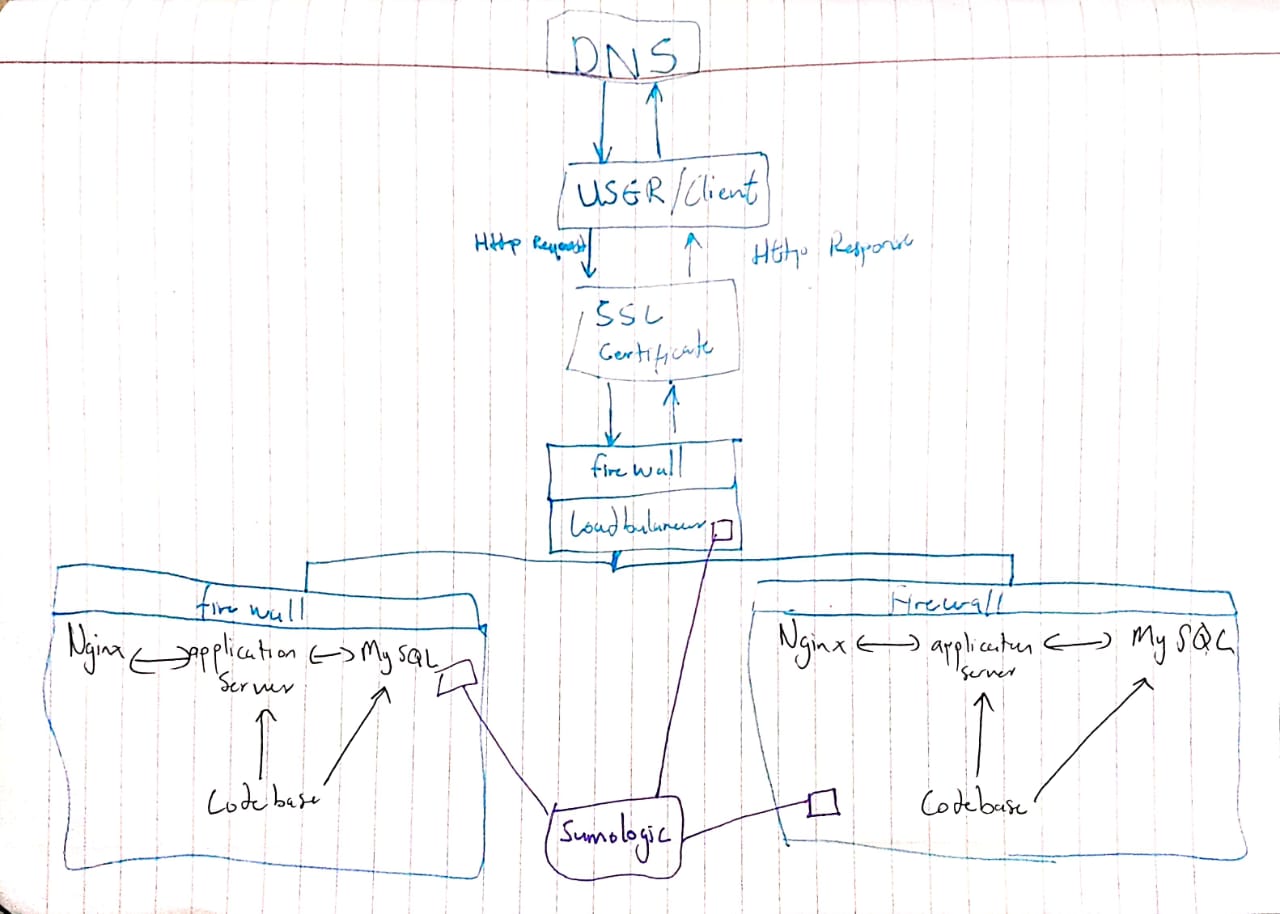 DNS
USER/Client
Http Request
Http Response
SSL
Certificate
firewall
Loadbalancer
firewall
Firewall
Nginx
application
Server
MySQL
Nginx
application
Server
MySQL
Codebase
Codebase
Sumologic